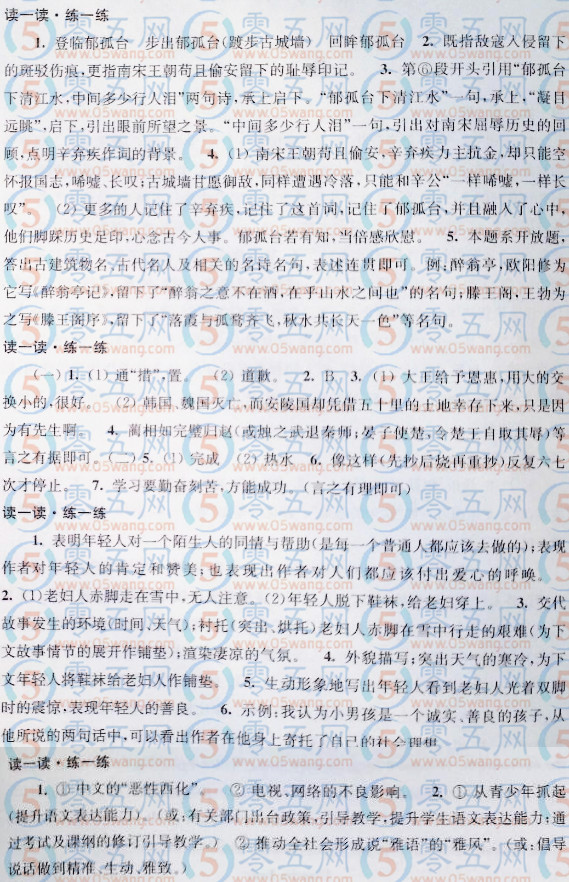 读一读·练一练
1. 登临郁孤台 步出郁孤台(踱步古城墙) 回眸郁孤台 2. 既指敌寇入侵留下
的斑驳伤痕,更指南宋王朝苟且偷安留下的耻辱印记。 3. 第⑥段开头引用“郁孤台
下清江水,中间多少行人泪”两句诗,承上启下。“郁孤台下清江水”一句,承上,“凝目
远眺”,启下,引出眼前所望之景。“中间多少行人泪”一句,引出对南宋屈辱历史的回
顾,点明辛弃疾作词的背景。 4. (1) 南宋王朝苟且偷安,辛弃疾力主抗金,却只能空
怀报国志,唏嘘、长叹;古城墙甘愿御敌,同样遭遇冷落,只能和辛公“一样唏嘘,一样长
叹”。 (2) 更多的人记住了辛弃疾,记住了这首词,记住了郁孤台,并且融入了心中,
他们脚踩历史足印,心念古今人事。郁孤台若有知,当倍感欣慰。 5. 本题系开放题,
答出古建筑物名,古代名人及相关的名诗名句,表述连贯即可。例:醉翁亭,欧阳修为
它写《醉翁亭记》,留下了“醉翁之意不在酒,在乎山水之间也”的名句;滕王阁,王勃为
之写《滕王阁序》,留下了“落霞与孤鹜齐飞,秋水共长天一色”等名句。
读一读·练一练
(一) 1. (1) 通“措”,置。 (2) 道歉。 2. B 3. (1) 大王给予恩惠,用大的交
换小的,很好。 (2) 韩国、魏国灭亡,而安陵国却凭借五十里的土地幸存下来,只是因
为有先生啊。 4. 蔺相如完璧归赵(或烛之武退秦师;晏子使楚,令楚王自取其辱)等
言之有据即可。(二) 5. (1) 完成 (2) 热水 6. 像这样(先抄后烧再重抄)反复六七
次才停止。 7. 学习要勤奋刻苦,方能成功。(言之有理即可)
读一读·练一练
1. 表明年轻人对一个陌生人的同情与帮助(是每一个普通人都应该去做的);表现
作者对年轻人的肯定和赞美;也表现出作者对人们都应该付出爱心的呼唤。
2. (1)老妇人赤脚走在雪中,无人注意。(2)年轻人脱下鞋袜,给老妇穿上。 3. 交代
故事发生的环境(时间、天气);衬托(突出、烘托)老妇人赤脚在雪中行走的艰难(为下
文故事情节的展开作铺垫);渲染凄凉的气氛。 4. 外貌描写;突出天气的寒冷,为下
文年轻人将鞋袜给老妇人作铺垫。 5. 生动形象地写出年轻人看到老妇人光着双脚
时的震惊,表现年轻人的善良。 6. 示例:我认为小男孩是一个诚实、善良的孩子,从
他所说的两句话中,可以看出作者在他身上寄托了自己的社会理想
读一读·练一练
1. ① 中文的“恶性西化”。 ② 电视、网络的不良影响。 2. ① 从青少年抓起
(提升语文表达能力)。(或:有关部门出台政策,引导教学,提升学生语文表达能力;通
过考试及课纲的修订引导教学。) ② 推动全社会形成说“雅语”的“雅风”。(或:倡导
说话做到精准、生动、雅致。)